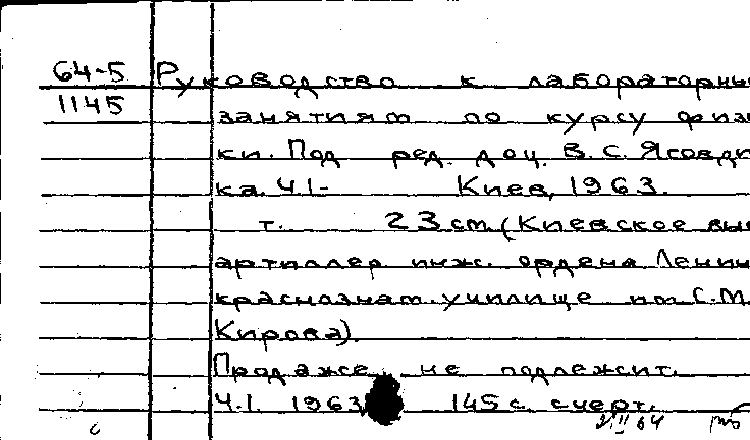 64-5 Руководство к лабораторны
1145 занятиям по курсу физ
ки. Под ред. доц. В.С. Ясовди
ка. Ч.1- Киев, 1963.
т. 23 см (Киевское выс
артиллер инж. ордена Ленин
краснознам. училище им С.М.
Кирова).
Продаже не подлежит.
Ч.1. 1963 145 с. с черт.